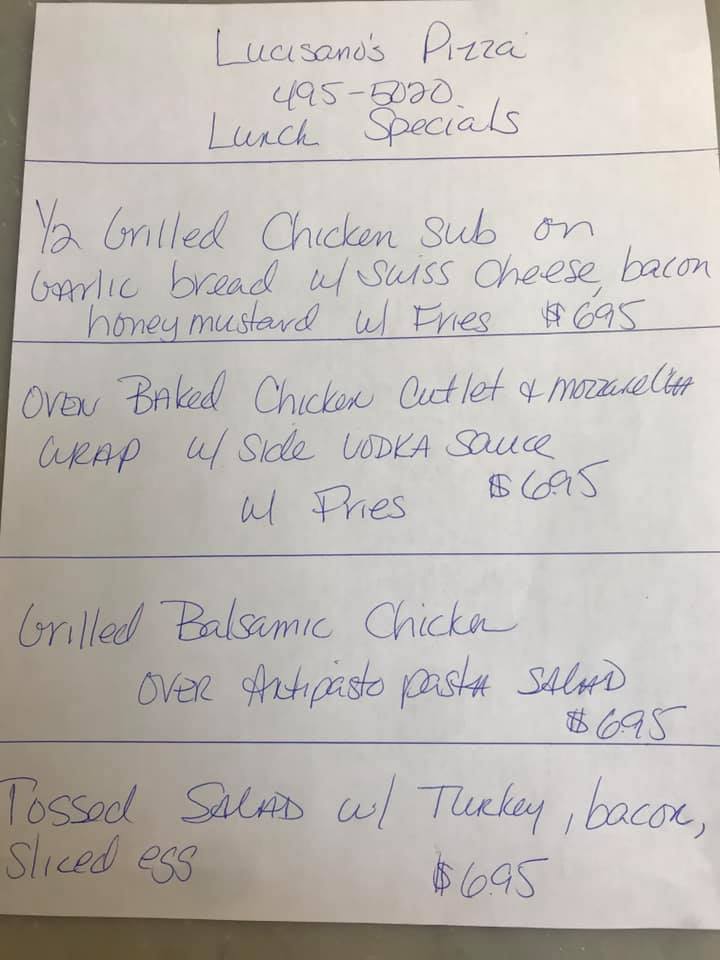 Lucisano's Pizza
495-5020
Lunch Specials
1/2 Grilled Chicken Sub on
Garlic bread w/ Swiss Cheese, bacon
honey mustard w/ Fries $6.95
OVEN BAKed Chicken Cutlet & mozzarella
WRAP w/ Side VODKA Sauce
$6.95
w/ Fries
Grilled Balsamic Chicken
OVER Antipasto pasta SALAD
$6.95
Tossed SALAD w/ Turkey, bacon,
Sliced egg $6.95